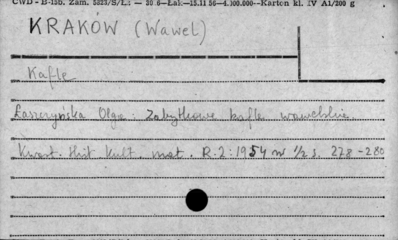 CWD - B-195. Zam. 5323/S/Lż — 20 6—Łak—13.11 56—4.000.000—Karton kl. IV A1/200 g
KRAKÓW (Wawel)
Kafle
Łaszczyńska Olga: Zabytkowe kafle wawelskie.
Kwart. Hist. kult. mat. R. 2: 1954 nr 1/2 s. 278-280